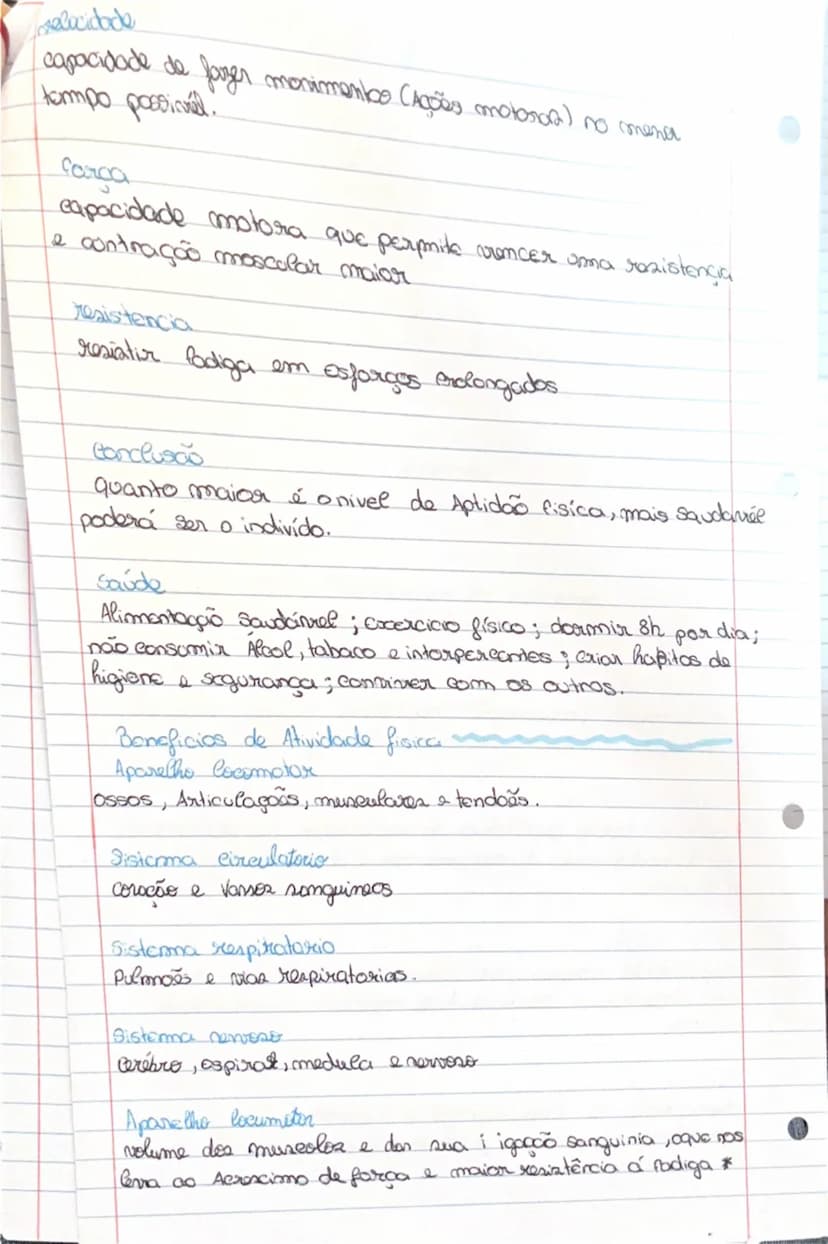 velocidade
capacidade de fazer movimentos (Ações motoras) no menor
tempo possivél.
força
capacidade motora que permite vencer uma resistença
e contração moscolar maior
resistencia
resistir fadiga em esforços prolongados
Conclusão
quanto maior é o nivel de Aptidão fisíca, mais saudavél
poderá ser o indivído.
Saúde
Alimentação saudável ; exercicio físico ; dormir 8h por dia ;
não consumir Álcol, tabaco e intorpercentes ; criar habitos de
higiene e segurança ; conviver com os outros.
Beneficios de Atividade fisica
Aparelho locomotor
ossos, Articulações, musculares e tendoẽs.
Sistema circulatorio
coração e vasos sanguineos
Sistema respiratorio
Pulmoẽs e vias respiratorias.
Sistema nervoso
Cerébro, espiral, medula e nervoso
Aparelho locumotor
volume dos musculos e dar sua sanguinia, oque nos
leva ao Acrescimo de força e maior resistência á fadiga *